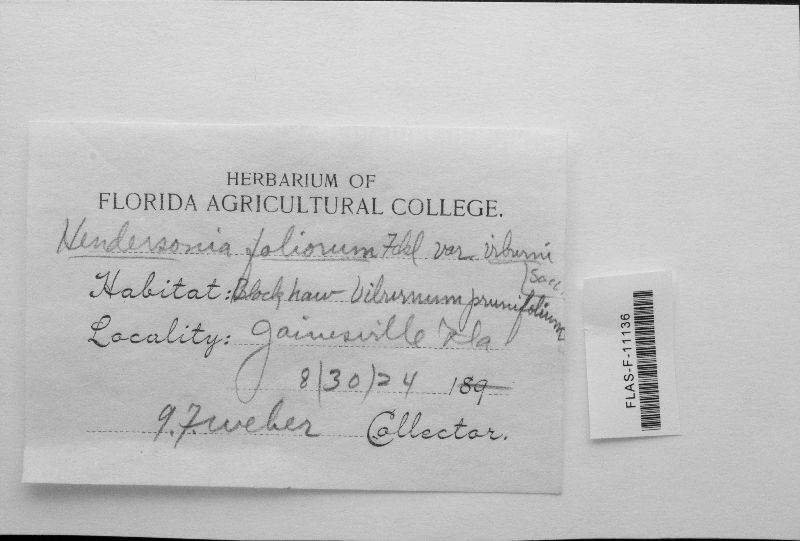 HERBARIUM OF
FLORIDA AGRICULTURAL COLLEGE.
Hendersonia foliorum Fkl var. viburni
Sacc.
Habitat: Black haw Viburnum prunifolium
Locality: Gainesville Fla
8/30/24 189
G.F. Weber Collector.
FLAS-F-11136